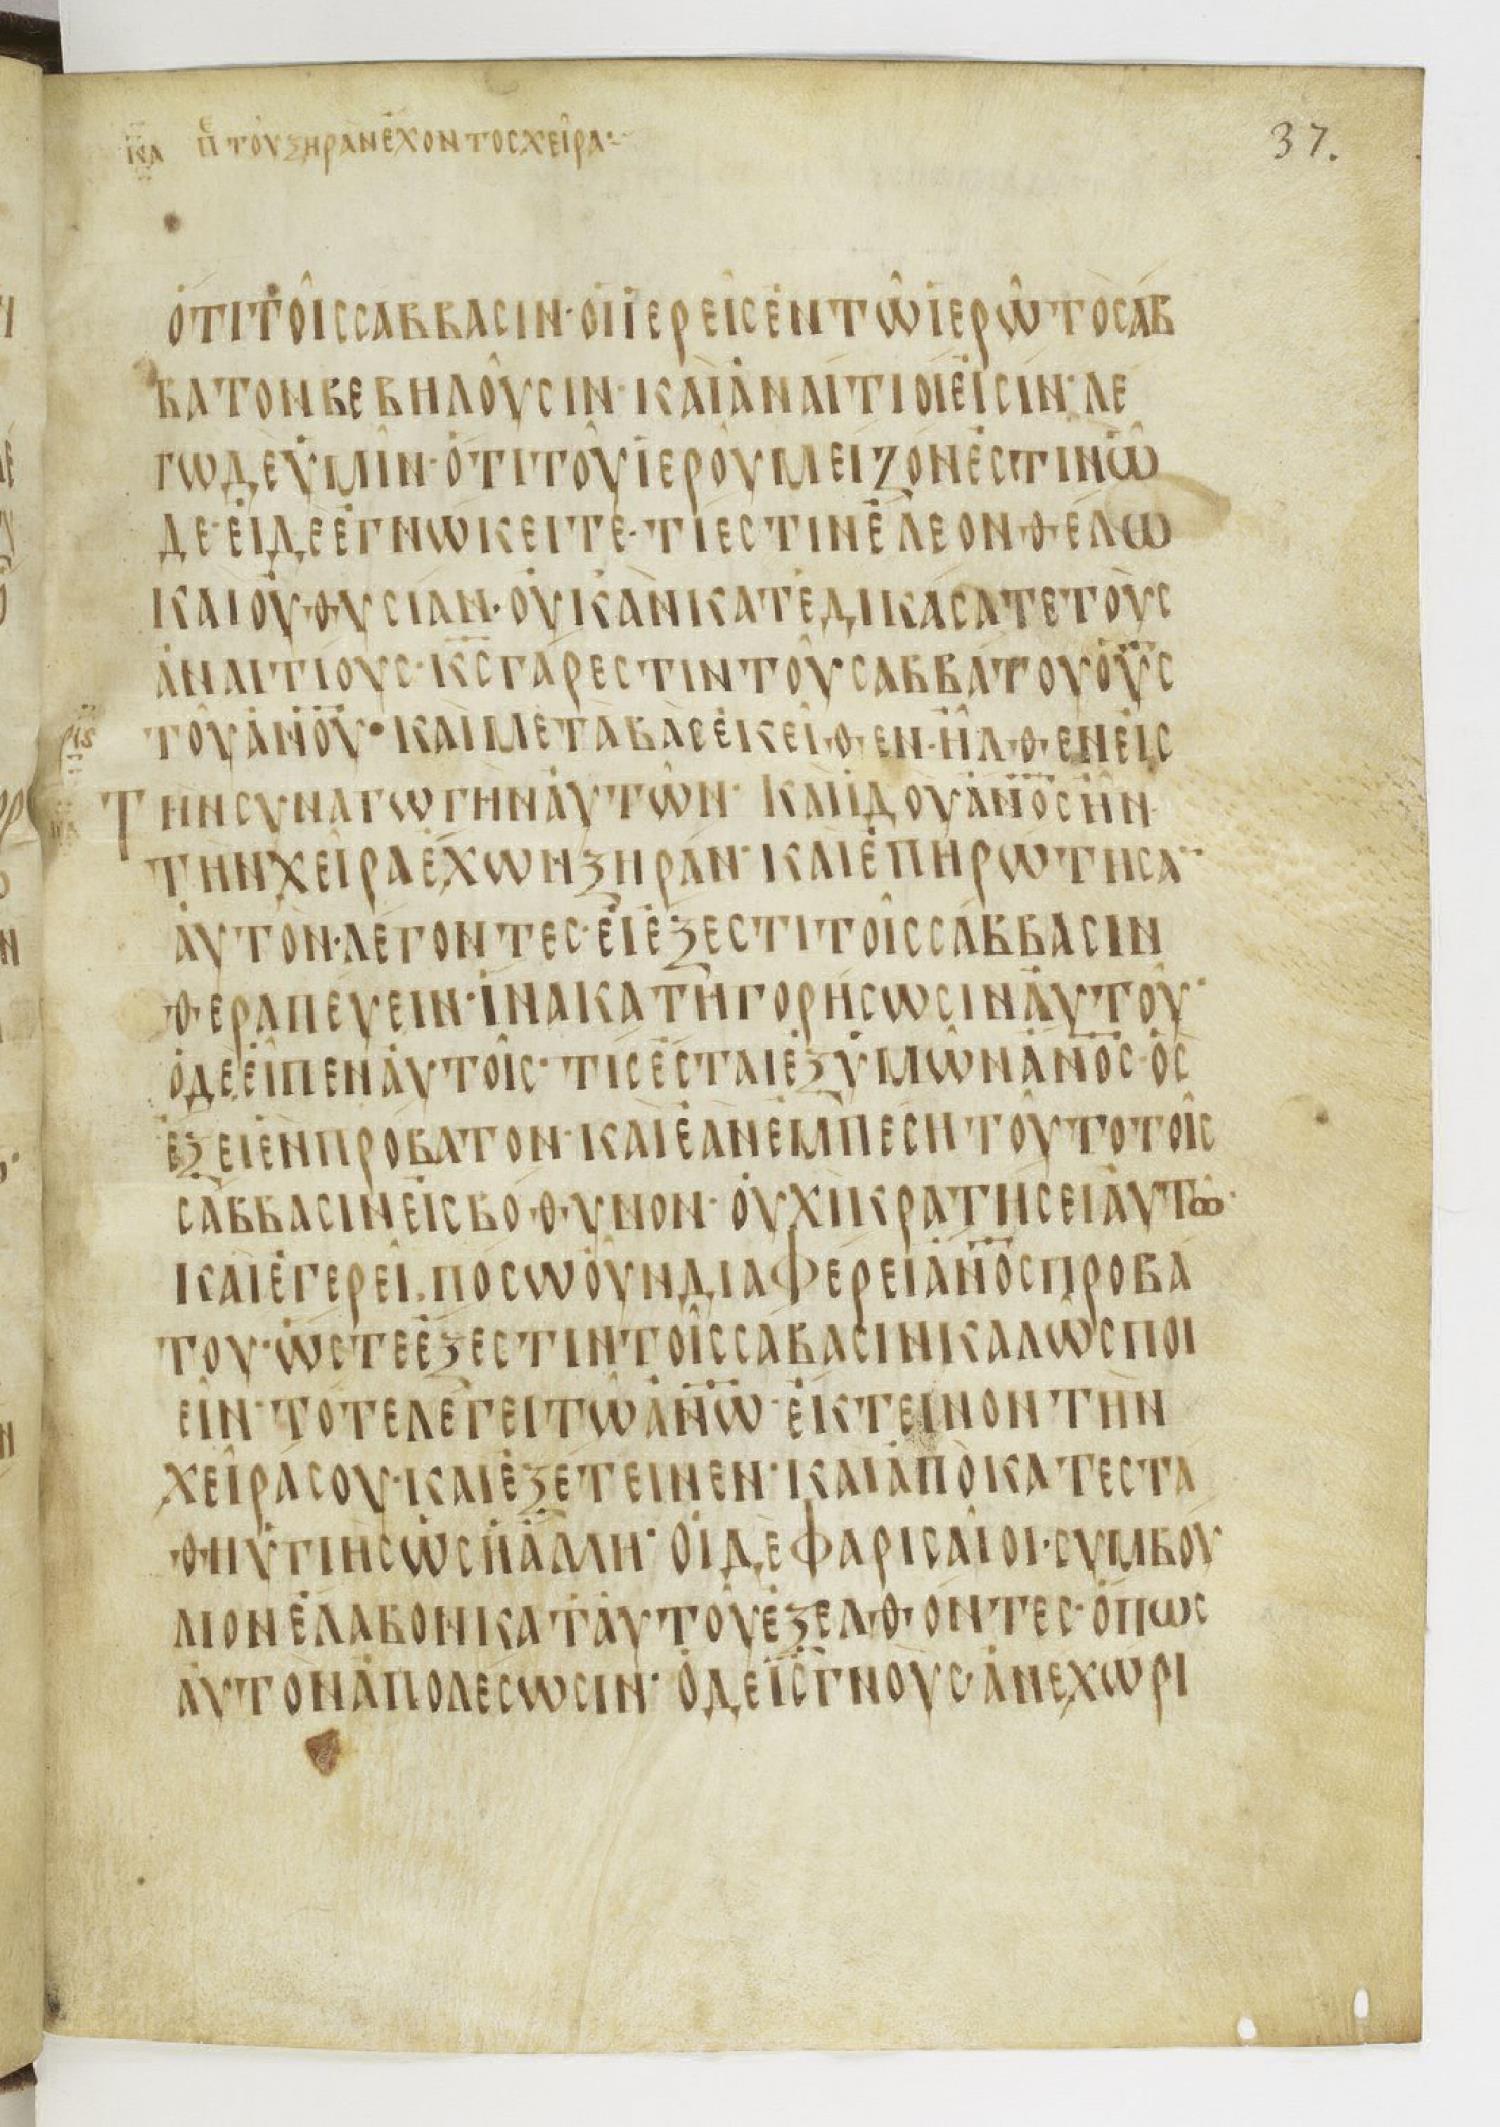 ΠΕ ΤΟΥ ΞΗΡΑΝ ΕΧΟΝΤΟΣ ΧΕΙΡΑ
37.
ὅτι τοῖς σάββασιν· οἱ ἱερεῖς ἐν τῶ ἱερῶ τὸ σάβ
βατον βεβηλοῦσιν· καὶ ἀναίτιοι εἰσίν· λέ
γω δὲ ὑμῖν· ὅτι τοῦ ἱεροῦ μείζον ἐστὶν ὧ
δε· εἰ δὲ ἐγνώκειτε· τί ἐστιν ἔλεον θέλω
καὶ οὐ θυσίαν· οὐκ ἂν κατεδικάσατε τοὺς
ἀναιτίους· κ̅ς̅ γάρ ἐστιν τοῦ σαββάτου ὁ υ̅ς̅
τοῦ α̅ν̅ο̅υ̅· καὶ μεταβὰς ἐκεῖθεν· ἦλθεν εἰς
τὴν συναγωγὴν αὐτῶν· καὶ ἰδοὺ α̅ν̅ο̅ς̅ ἦν
τὴν χεῖρα ἔχων ξηράν· καὶ ἐπηρώτησα
αὐτὸν· λέγοντες· εἰ ἔξεστι τοῖς σάββασιν
θεραπεύειν· ἵνα κατηγορήσωσιν αὐτοῦ·
ὁ δὲ εἶπεν αὐτοῖς· τίς ἔσται ἐξ ὑμῶν α̅ν̅ο̅ς̅· ὃς
ἕξει ἓν πρόβατον· καὶ ἐὰν ἐμπέση τοῦτο τοῖς
σάββασιν εἰς βόθυνον· οὐχὶ κρατήσει αὐτὸ·
καὶ ἐγερεῖ· πόσω οὖν διαφέρει α̅ν̅ο̅ς̅ προβά
του· ὥστε ἔξεστιν τοῖς σάβασιν καλῶς ποι
εῖν· τότε λέγει τῶ α̅ν̅ω̅· ἔκτεινον τὴν
χεῖρά σου· καὶ ἐξέτεινεν· καὶ ἀποκατεστά
θη ὑγιὴς ὡς ἡ ἄλλη· οἱ δὲ φαρισαῖοι· συμβου
λιον ἔλαβον κατ' αὐτοῦ ἐξελθόντες· ὅπως
αὐτὸν ἀπολέσωσιν· ὁ δὲ ι̅ς̅ γνοὺς· ἀνεχώρι